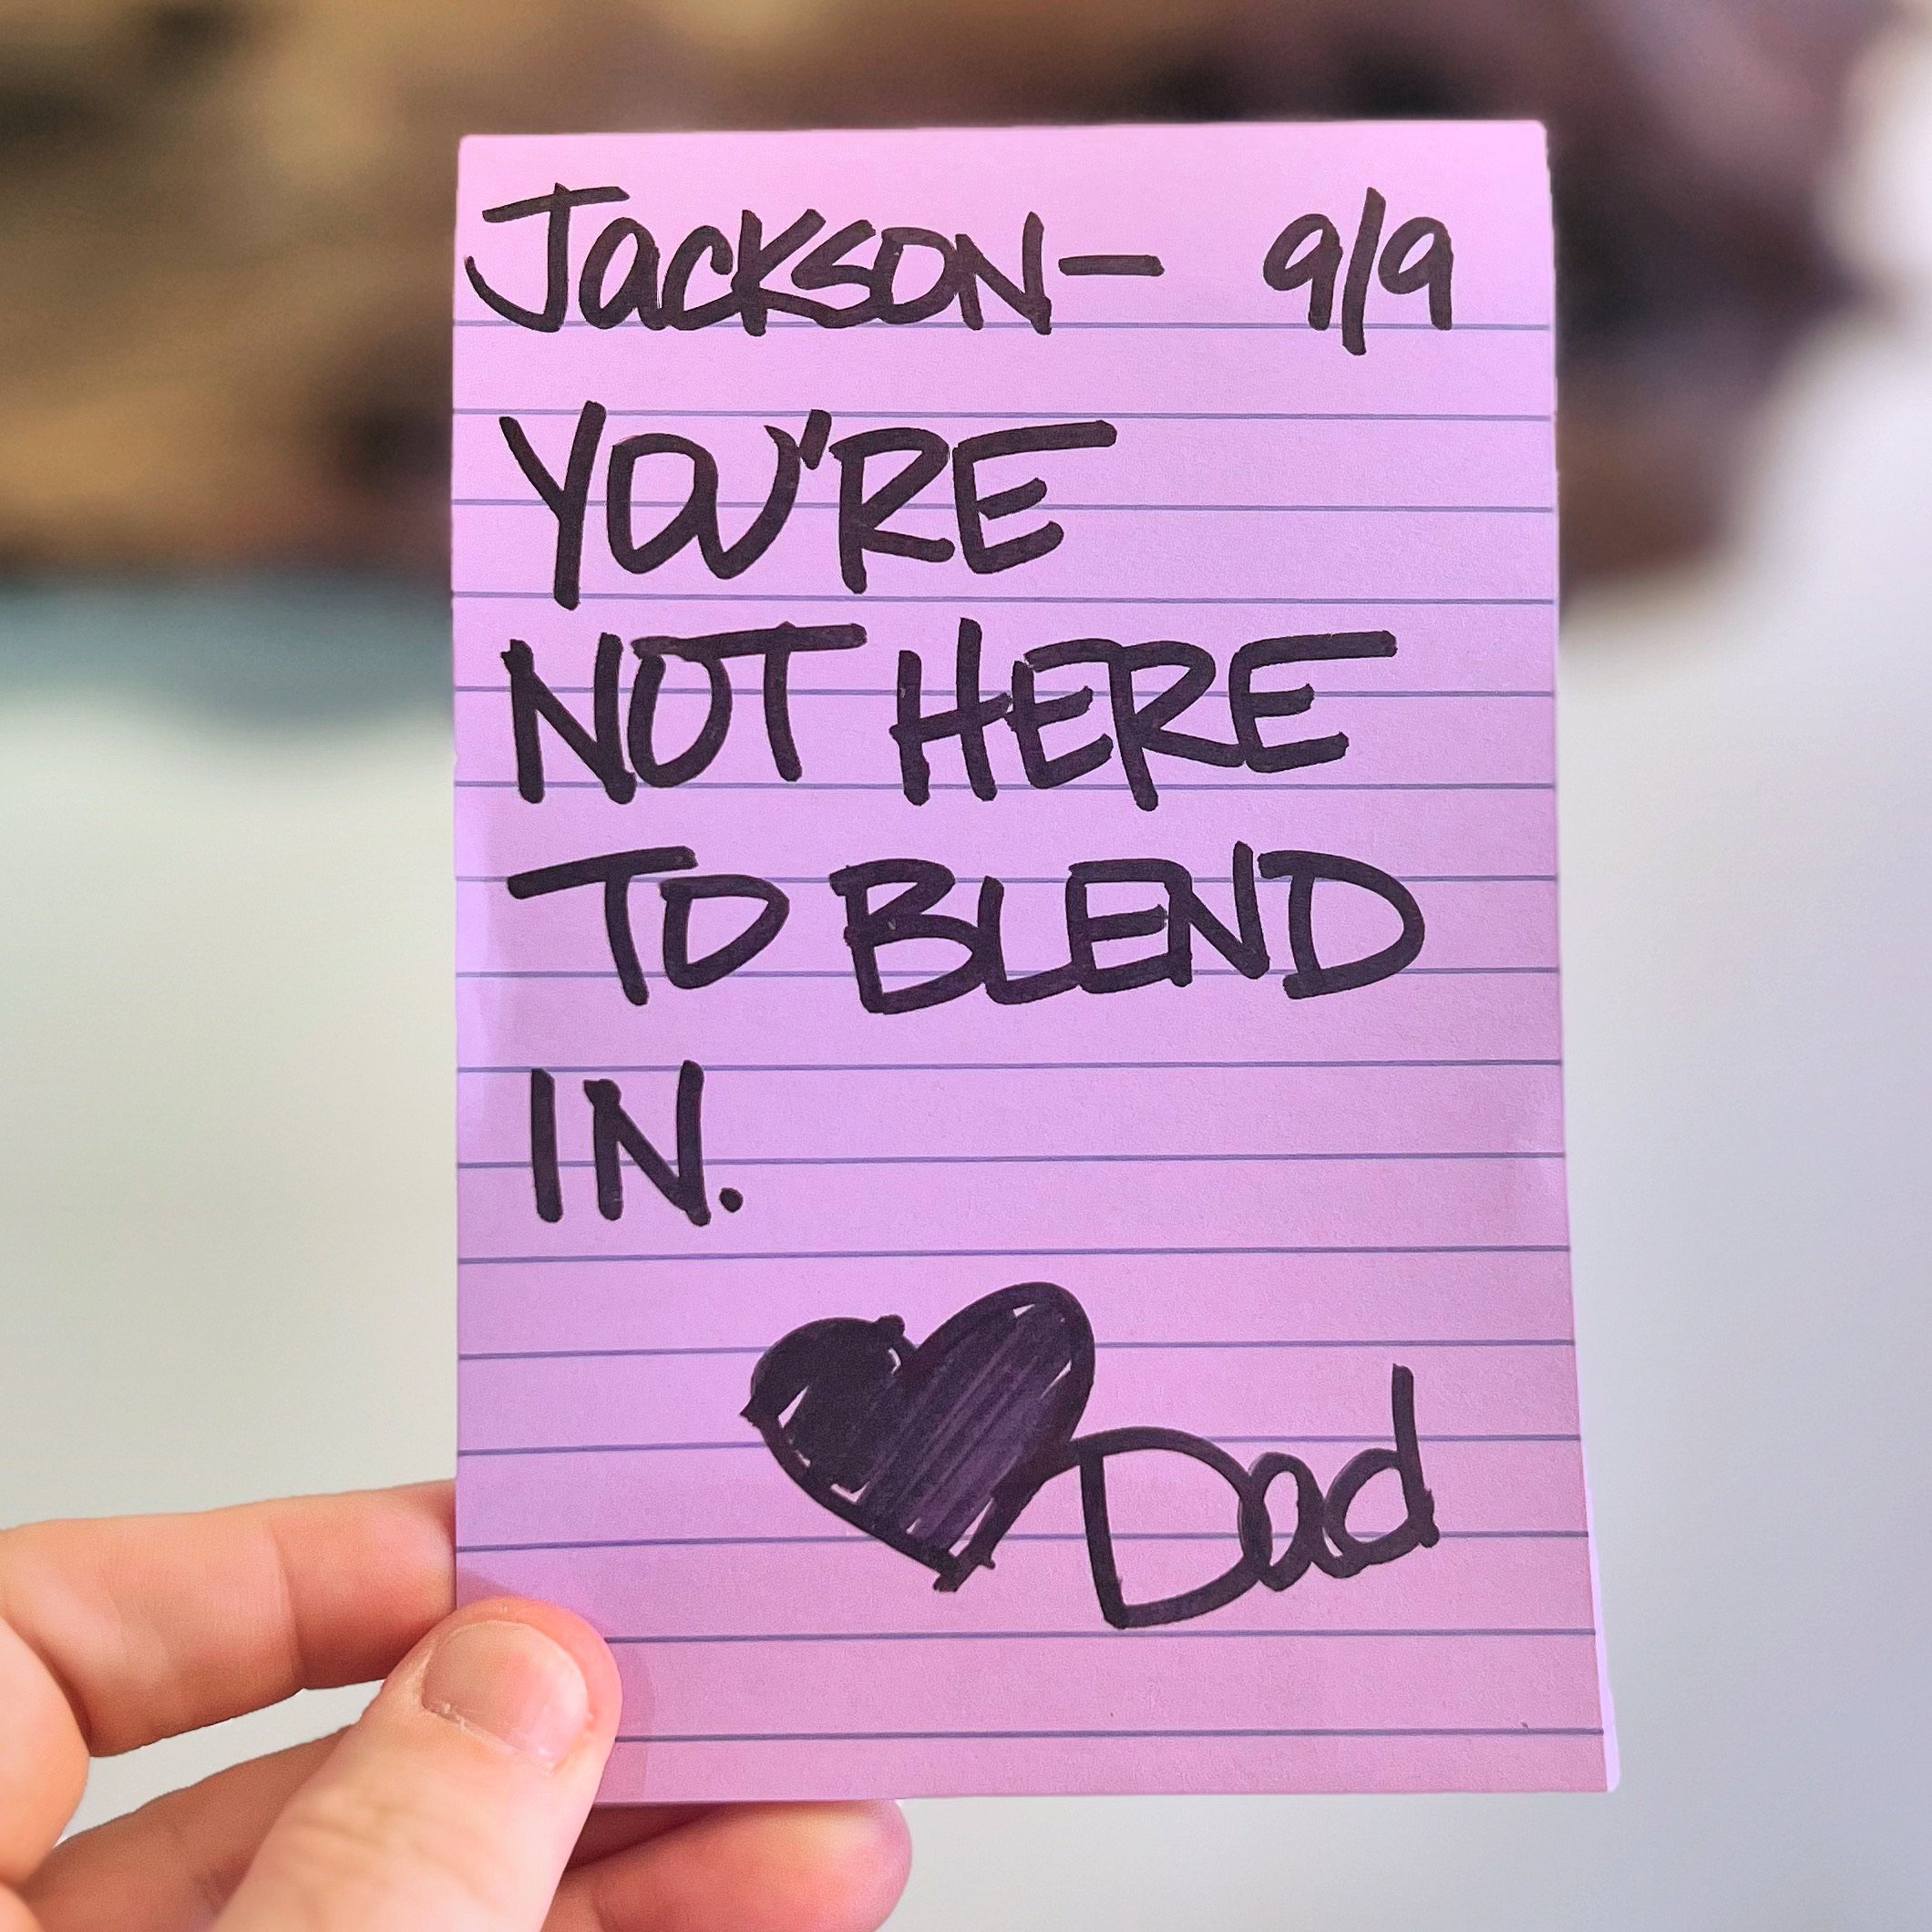 Jackson— 9/9
YOU'RE
NOT HERE
TO BLEND
IN.
Dad